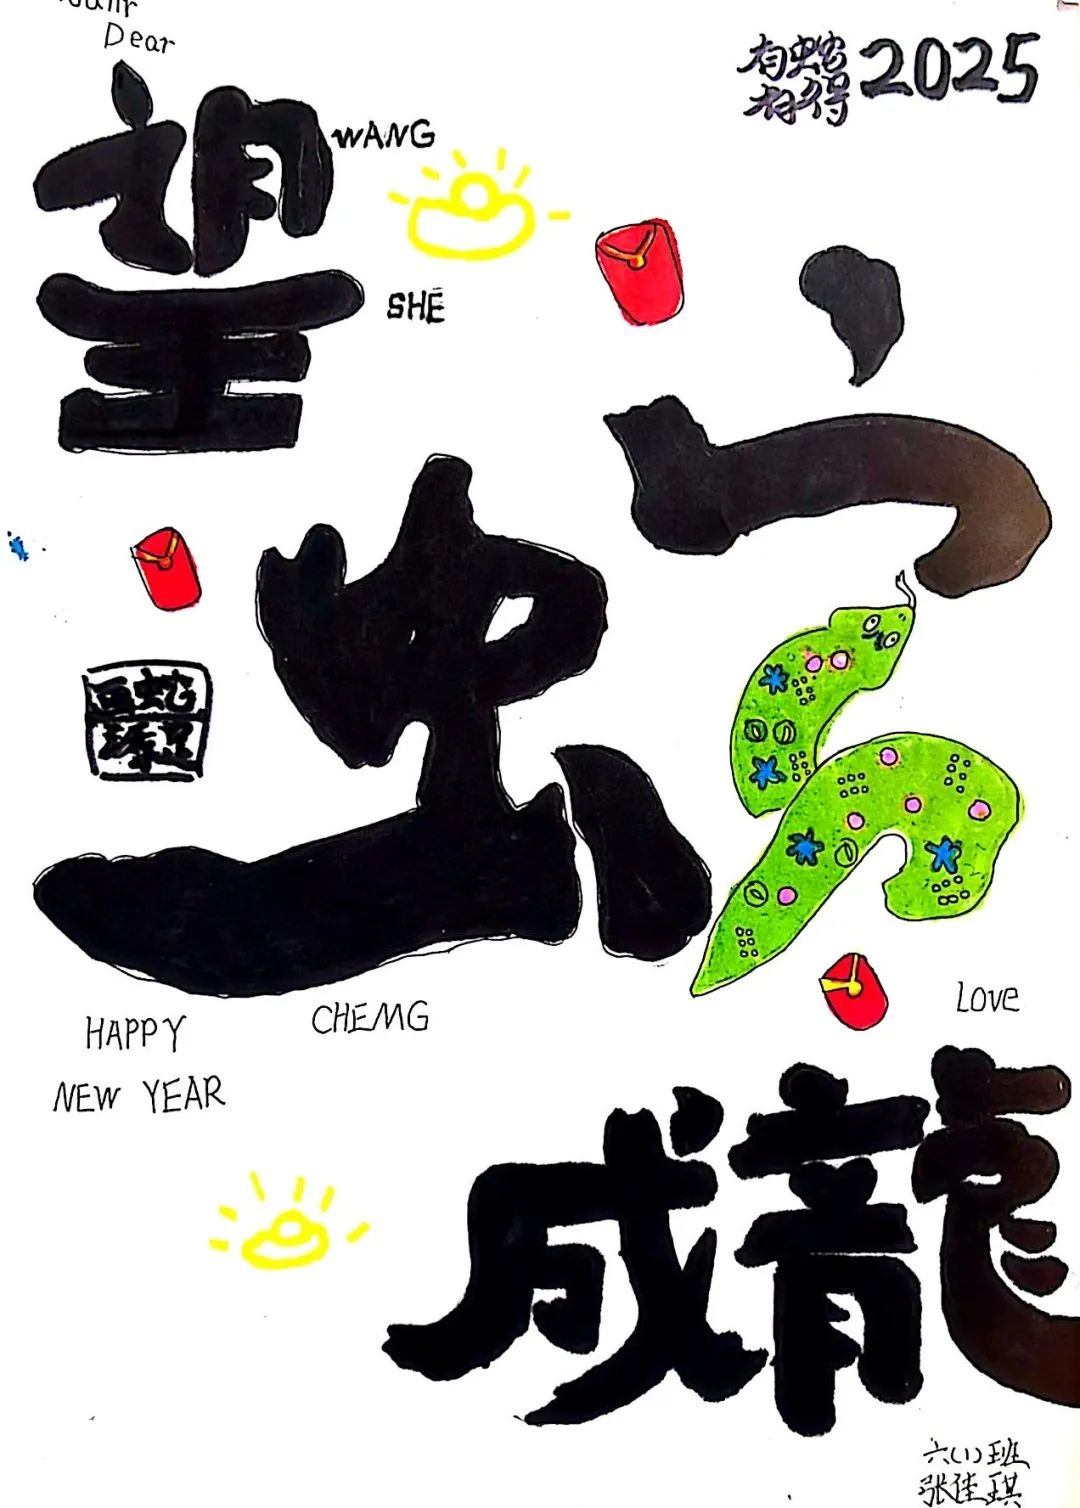 Dear
有蛇 2025
有得
望
WANG
SHE
蛇
画蛇
添足
HAPPY
NEW YEAR
CHEMG
LOVE
成龍
六(1)班
张佳琪